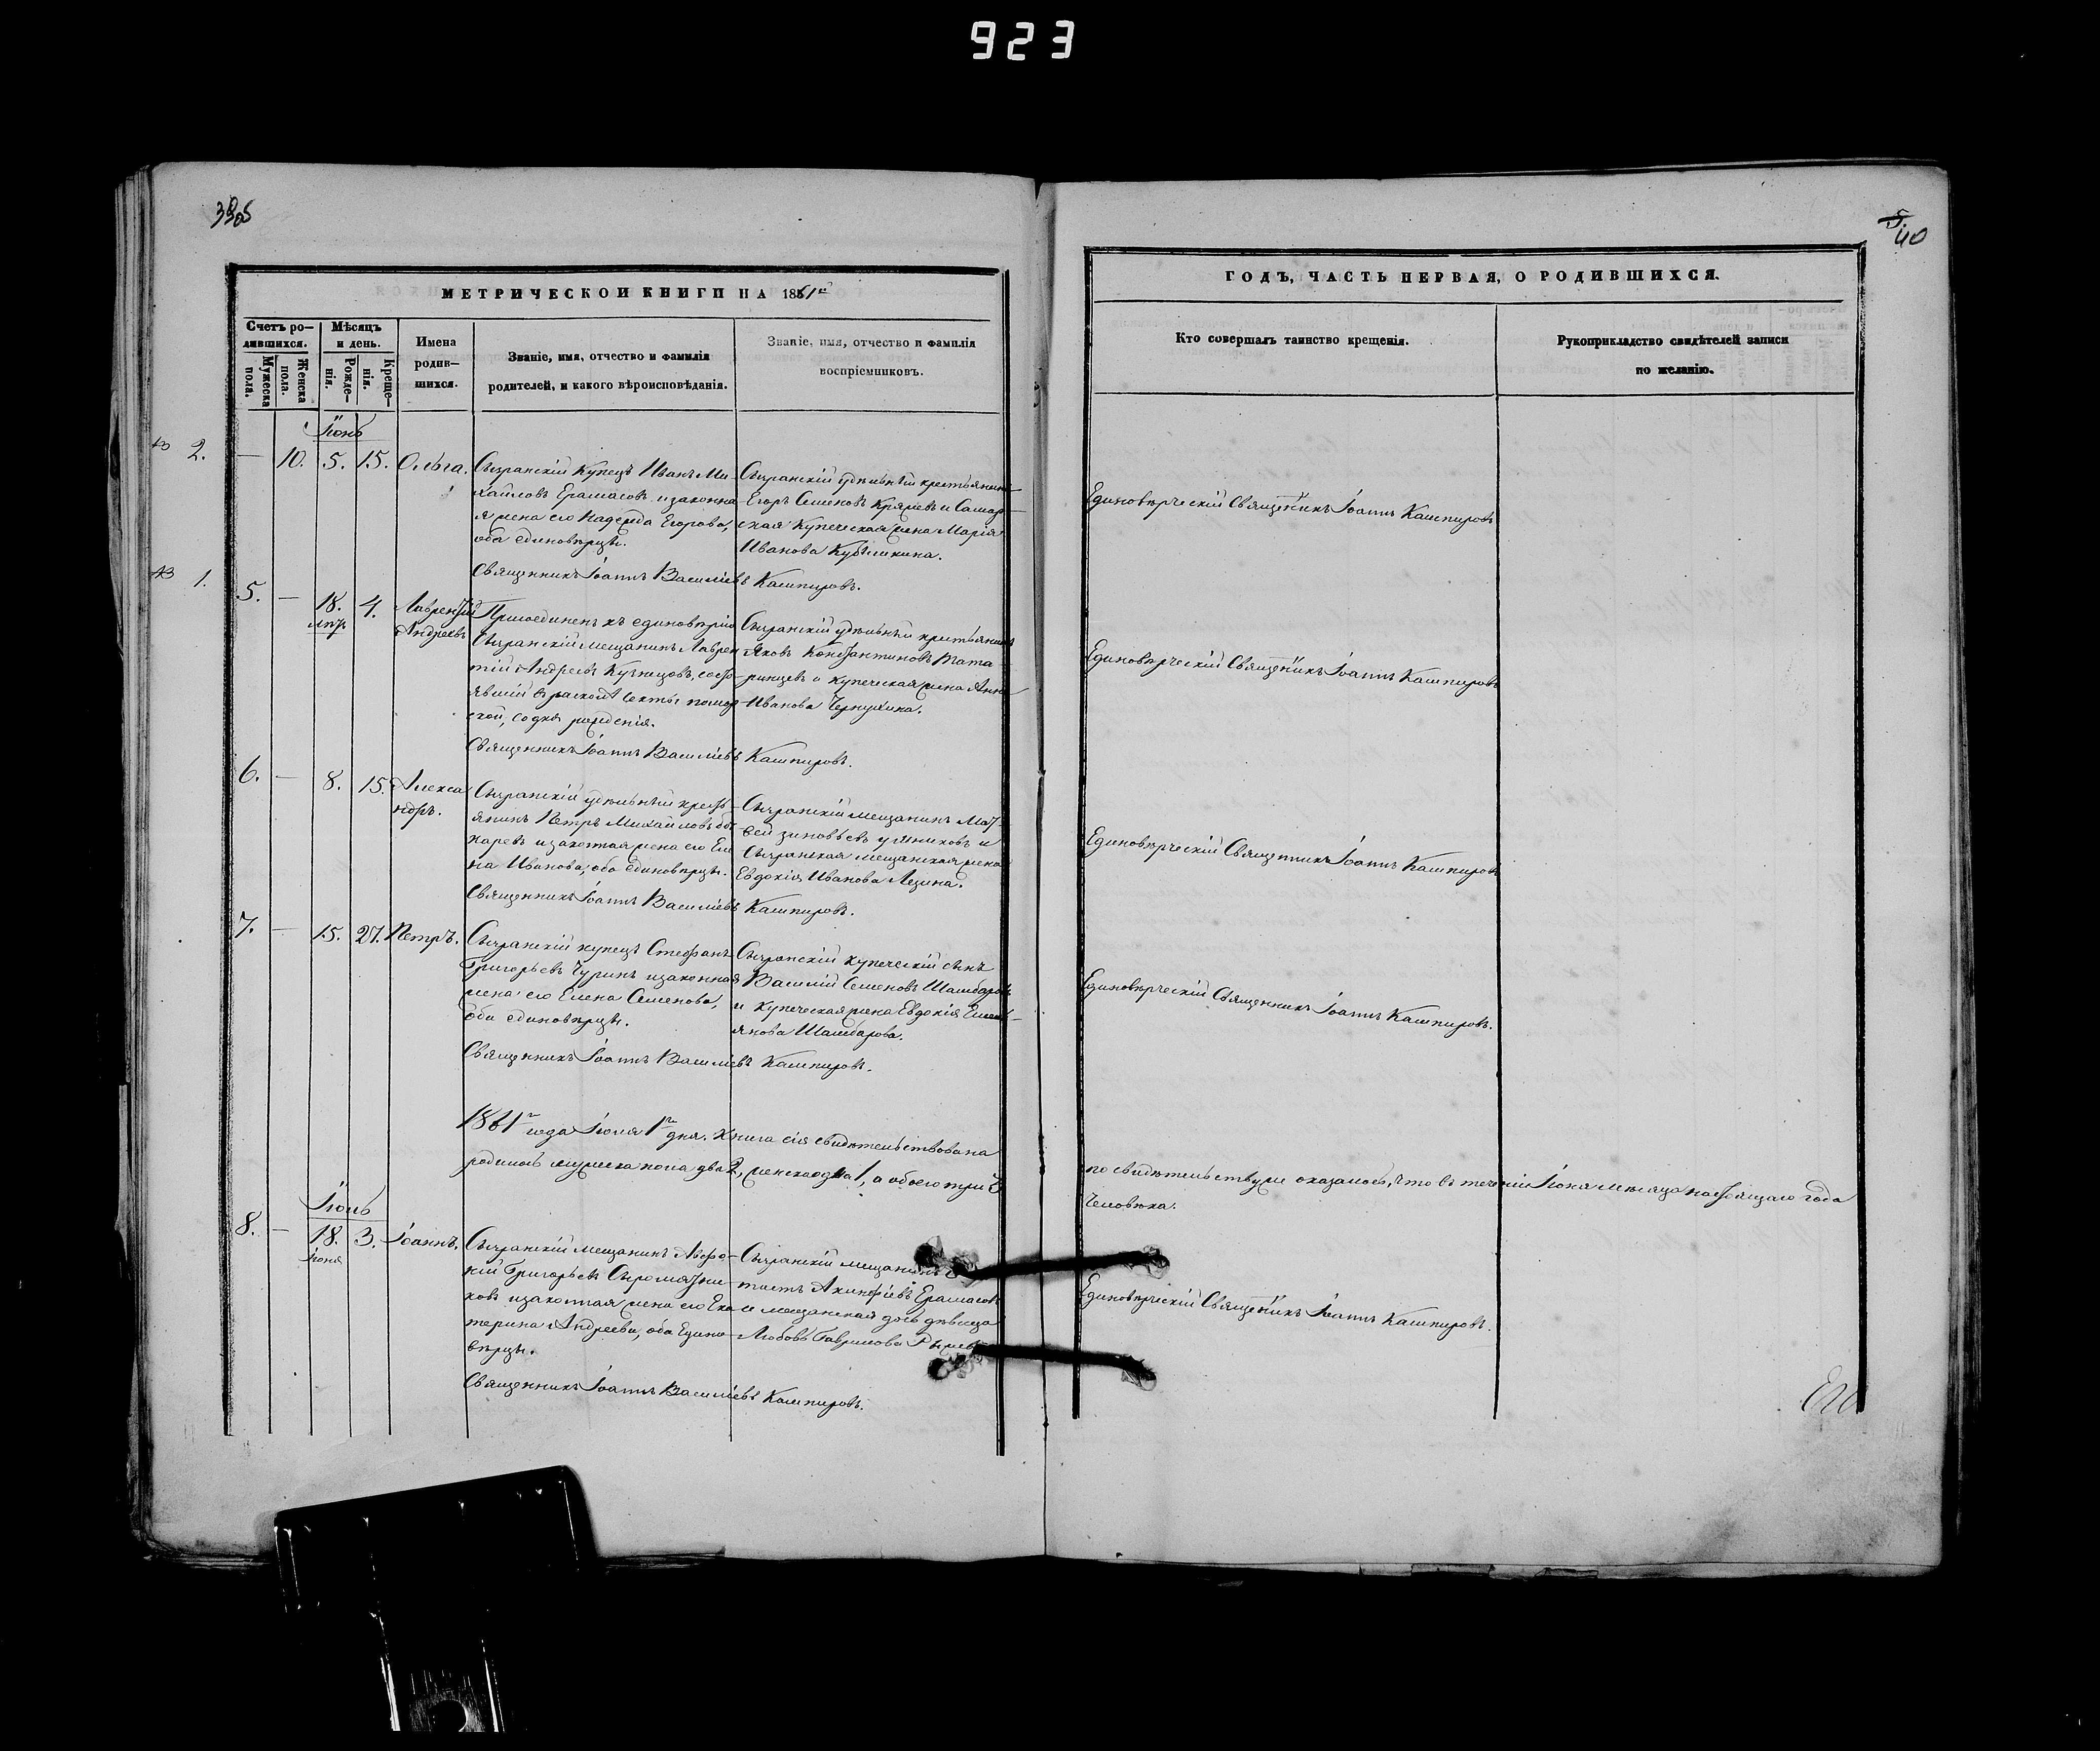 923
40
МЕТРИЧЕСКОЙ КНИГИ НА 1861й
ГОДЪ, ЧАСТЬ ПЕРВАЯ, О РОДИВШИХСЯ.
Счетъ ро-
дившихся.
Мужеска
пола.
Женска
пола.
Мѣсяцъ
и день.
Рожде-
нія.
Креще-
нія.
Имена
родив-
шихся.
Званіе, имя, отчество и фамилія
родителей, и какого вѣроисповѣданія.
Званіе, имя, отчество и фамилія
воспріемниковъ.
Кто совершалъ таинство крещенія.
Рукоприкладство свидѣтелей записи
по желанію.
Іюнь
2. — 10. 5. 15. Ольга.
Сызранскій Купецъ Иванъ Ми-
хайловъ Ерамасовъ и законна-
я жена его Надежда Егорова,
оба единовѣрцы.
Сызранскій удѣльный крестьянинъ
Егоръ Семеновъ Кряжевъ и Самар-
ская Купеческая жена Марія
Иванова
Священникъ Іоаннъ Васильевъ Кашпировъ.
Единовѣрческій Священникъ Іоаннъ Кашпировъ
1. 5. — 18. 4. Лаврентій
Андреевъ
Присоединенъ къ единовѣрію
Сызранскій мещанинъ Лаврен-
тій Андреевъ Кузнецовъ, состо-
явшій въ расколѣ секты помор-
ской, со дня рожденія.
Сызранскій удѣльный крестьянинъ
Яковъ Константиновъ Тата-
ринцевъ и купеческая жена Анна
Иванова Чернухина.
Священникъ Іоаннъ Васильевъ Кашпировъ.
Единовѣрческій Священникъ Іоаннъ Кашпировъ
6. — 8. 15. Алекса-
ндръ.
Сызранскій удѣльный кресть-
янинъ Петръ Михайловъ
и законная жена его Еле-
на Иванова, оба единовѣрцы.
Сызранскій мещанинъ Мат-
вей Зиновьевъ и
Сызранская мещанская жена
Евдокія Иванова Лезина.
Священникъ Іоаннъ Васильевъ Кашпировъ.
Единовѣрческій Священникъ Іоаннъ Кашпировъ
7. — 15. 27. Петръ.
Сызранскій купецъ Стефанъ
Григорьевъ Чуринъ и законная
жена его Елена Семенова,
оба единовѣрцы.
Сызранскій купеческій сынъ
Василій Семеновъ Шамбаровъ
и Купеческая жена Евдокія Емель-
янова Шамбарова.
Священникъ Іоаннъ Васильевъ Кашпировъ.
Единовѣрческій Священникъ Іоаннъ Кашпировъ.
1861 года Іюля 1го дня. Книга сія свидѣтельствована
по свидѣтельству же оказалось, что въ теченіи Іюня мѣсяца настоящаго года
родилось мужеска пола два 2, женска одна 1, а обоего три 3
человѣка.
Іюль
8. — 18. 3. Іоаннъ.
Іюня
Сызранскій мещанинъ
Григорьевъ Сыромятни-
ковъ и законная жена его Ека-
терина Андреева, оба едино-
вѣрцы.
Сызранскій мещанинъ
Акинфіевъ Ерамасовъ
и мещанская дочь дѣвица
Любовь Гаврилова
Священникъ Іоаннъ Васильевъ Кашпировъ.
Единовѣрческій Священникъ Іоаннъ Кашпировъ.